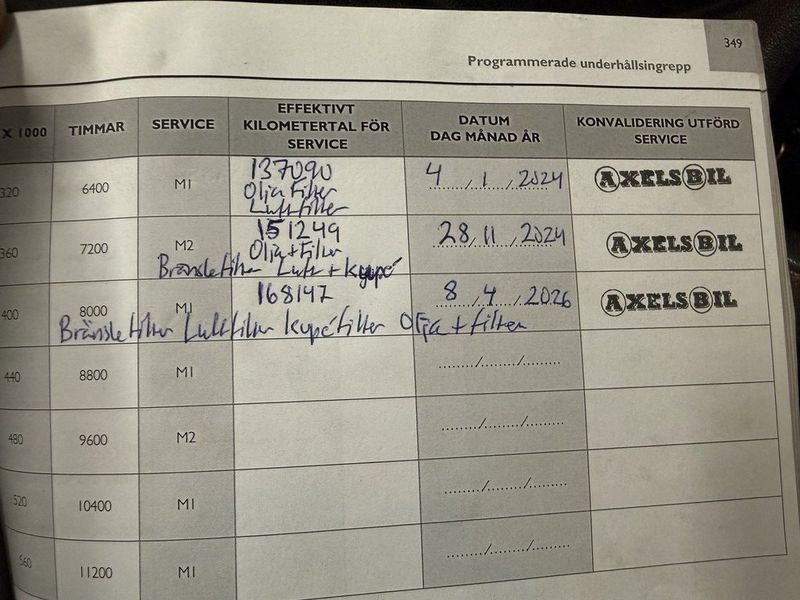 349
Programmerade underhållsingrepp
X 1000 TIMMAR SERVICE EFFEKTIVT KILOMETERTAL FÖR SERVICE DATUM DAG MÅNAD ÅR KONVALIDERING UTFÖRD SERVICE
320 6400 M1 137090 4 / 1 / 2024 AXELS BIL
Olja Filter
Luftfilter
360 7200 M2 151249 28 / 11 / 2024 AXELS BIL
Olja + Filter
Bränslefilter Luft + kupé
400 8000 M1 168147 8 / 4 / 2026 AXELS BIL
Bränslefilter Luftfilter kupéfilter Olja + filter
440 8800 M1 ....../....../......
480 9600 M2 ....../....../......
520 10400 M1 ....../....../......
560 11200 M1 ....../....../......